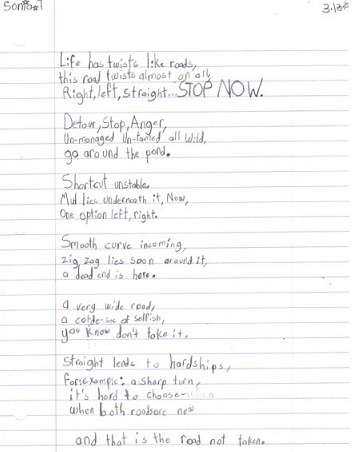 3.13
Life has twists like roads,
this road twists almost on all,
Right, left, straight... STOP NOW.
Detour, Stop, Anger,
Un-managed Un-tamed all wild,
go around the pond.
Shortcut unstable.
Mud lies underneath it, Now,
One option left, right.
Smooth curve incoming,
zig zag lies soon around it,
a dead end is here.
a very wide road,
a colde-sac of selfish,
you know don't take it.
Straight leads to hardships,
For example: a sharp turn,
it's hard to choose
when both roads are new
and that is the road not taken.